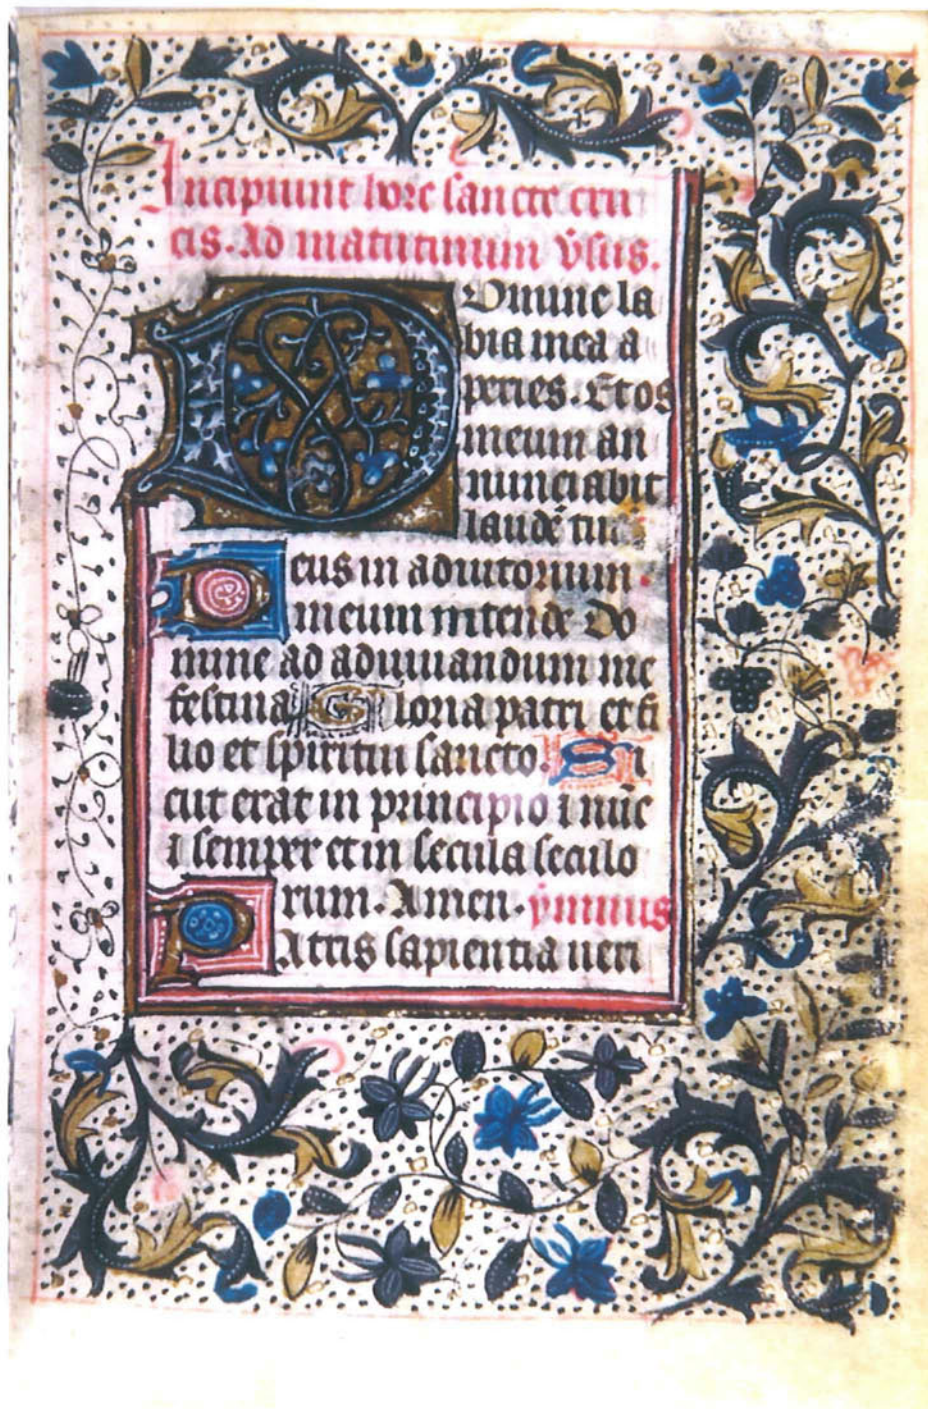 Incipiunt hore sancte cru
cis. Ad matutinum v̇sus.
Domine la
bia mea a
peries. Et os
meum an
nunciabit
laudē tuā
Deus in adiutorium
meum intende Do
mine ad adiuuandum me
festina Gloria patri et fi
lio et spiritui sancto. Si
cut erat in principio ⁊ nūc
⁊ semper et in secula seculo
rum. Amen. ẏmnus
Patris sapientia ueri